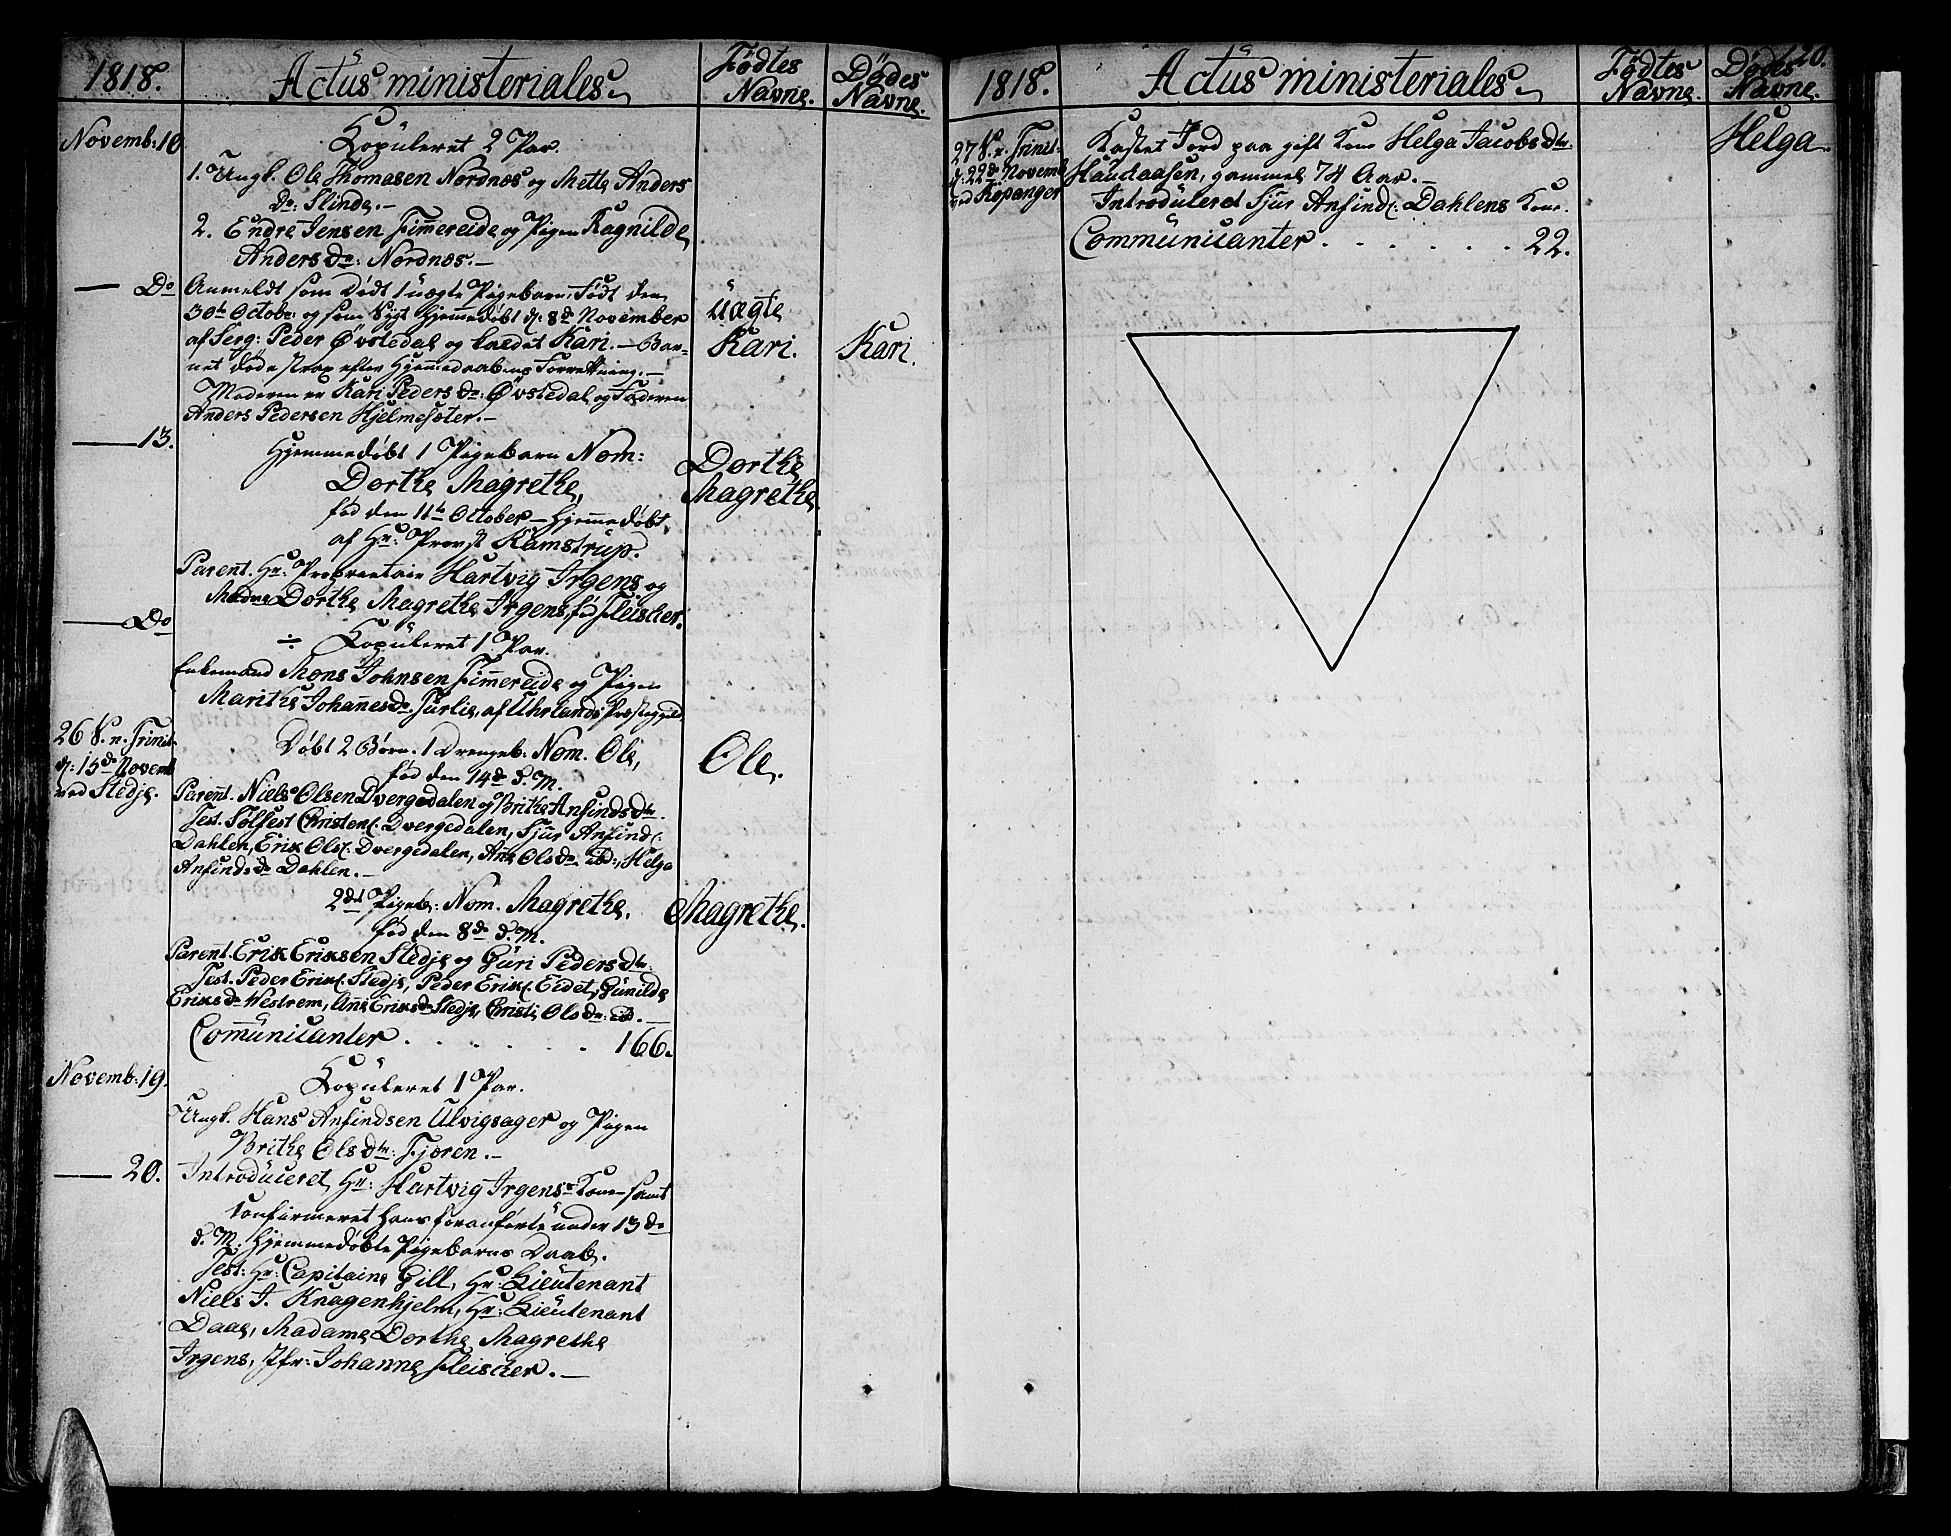 1818.
Actus ministeriales.
Födtes Navne.
Dödes Navne.
Novemb: 10
Kopüleret 2 Par.
1. Ungk. Ole Thomasen Nordnæs og Mette Anders
Do: Slinde.
2. Endre Jensen Fim̄ereide og Pigen Ragnilde
Anders do: Nordnæs.
Do
Anmeldt som Dødt 1 uægte Pigebarn, Født den
30te Octobr og som Sygt Hjem̄edøbt d: 8de November
af Serg: Peder Øvstedal og kaldet Kari. - Bar-
net døde strax efter Hjem̄edaabens Forretning.
Moderen er Kari Peders do: Øvstedal og Faderen
Anders Pedersen Hjelmesæter.
üægte
Kari.
Kari.
13.
Hjemmedøbt 1 Pigebarn Nom:
Dorthe Magrethe,
fød den 11te October - Hjem̄edøbt
af Hr: Provst Kamstrup.
Parent. Hr: Proprietair Hartvig Irgens og
Madme Dorthe Magrethe Irgens fød Fleischer.
Dorthe
Magrethe
Do
÷ Kopüleret 1 Par.
Enkemand Mons Johnsen Fim̄ereide og Pigen
Marithe Johanes do. Turlie, af Uhrlands Præstegjeld
26 S. n. Trinit.
d: 15de Novemb
ved Stedje.
Døbt 2 Børn. 1 Drengeb: Nom. Ole,
fød den 14de d. M.
Parent. Niels Olsen Dvergedalen og Brithe Anfinds dtr.
Test. Sølfest Christens. Dvergedalen, Sjur Anfinds.
Dahlen, Erik Ols. Dvergedalen, Ane Ols do ibd:, Helga
Anfinds do Dahlen.
Ole.
2det Pigeb: Nom. Magrethe.
fød den 8de d. M.
Parent. Erik Eriksen Stedje og Güri Peders dtr.
Test. Peder Eriks. Stedje, Peder Eriks. Eidet, Gunilde
Eriks do Westrem, An̄e Eriks do Stedje, Christi Ols dr: ibd.
Magrethe.
Com̄ünicanter . . . . . . 166.
Novemb: 19.
Kopüleret 1 Par.
Ungk. Hans Anfindsen Ulvigsager og Pigen
Brithe Ols dtr: Fjøren.
20.
Introdüceret Hr: Hartvig Irgens's Kone - samt
konfirmeret hans foranførte under 13de
d. M. Hjemmedøbte Pigebarns Daab.
Test: Hr: Capitaine Gill, Hr: Lieütenant
Niels J. Knagenhjelm, Hr: Lieütenant
Daae, Madame Dorthe Magrethe
Irgens, Jfr: Johanne Fleischer.
1818.
Actus ministeriales.
Födtes Navne.
Dödes Navne.
120.
27 S. n. Trinit.
d: 22de Novemb
ved Kopanger
Kastet Jord paa gift Kone Helga Jacobs dtr.
Haudaasen, gammel 74 Aar.
Introdüleret Sjür Anfinds: Dahlens Kone.
Communicanter . . . . . . 22.
Helga.